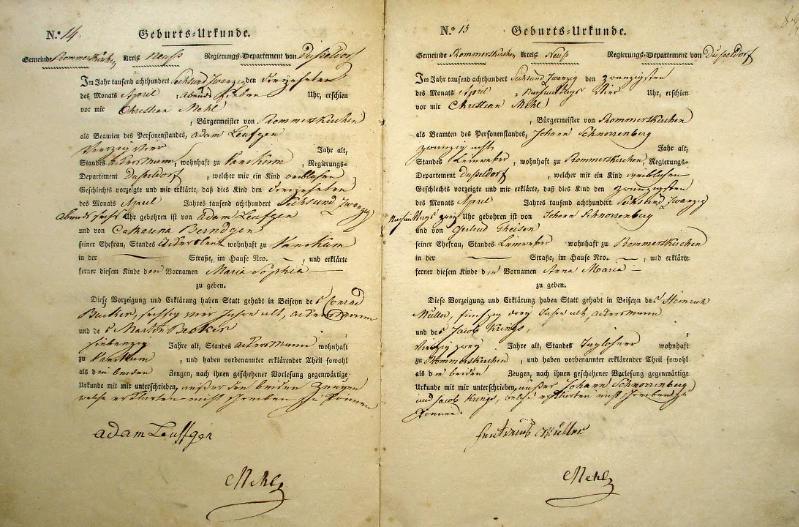 N.º 14. Geburts-Urkunde.
Gemeinde Rommerskirchen Kreis Neuss Regierungs-Departement von Düsseldorf
Im Jahr tausend achthundert Sechsund Zwanzig den dreizehnten
des Monats April, Abends sieben Uhr, erschien
vor mir Christian Mehl
, Bürgermeister von Rommerskirchen
als Beamten des Personenstandes, Adam Leufgen
vierzig vier Jahr alt,
Standes Ackersmann, wohnhaft zu Vanikum, Regierungs-
Departement Düsseldorf, welcher mir ein Kind weiblichen
Geschlechts vorzeigte und mir erklärte, daß dies Kind den dreizehnten
des Monats April Jahres tausend achthundert Sechsund Zwanzig
Abends sechs Uhr gebohren ist von Adam Leufgen
und von Catharina Berndgen
seiner Ehefrau, Standes Ackersleut wohnhaft zu Vanikum
in der — Straße, im Hause Nro. —, und erklärte
ferner diesem Kinde den Vornamen Maria Sophia
zu geben.
Diese Vorzeigung und Erklärung haben Statt gehabt in Beiseyn des Conrad
Becker, sechszig vier Jahr alt, Ackersmann
und des Martin Becker
siebenzig Jahre alt, Standes Ackersmann wohnhaft
zu Vanikum, und haben vorbenamter erklärender Theil sowohl
als den beiden Zeugen, nach ihnen geschehener Vorlesung gegenwärtige
Urkunde mit mir unterschrieben, außer den beiden Zeugen
welche erklärten nicht schreiben zu können
Adam Leuffgen
Mehl
N.º 15 Geburts-Urkunde.
Gemeinde Rommerskirchen Kreis Neuß Regierungs-Departement von Düsseldorf
Im Jahr tausend achthundert Sechsund Zwanzig den zwanzigsten
des Monats April, Nachmittags vier Uhr, erschien
vor mir Christian Mehl
, Bürgermeister von Rommerskirchen
als Beamten des Personenstandes, Johann Schnorrenberg
zwanzig acht Jahr alt,
Standes Leinweber, wohnhaft zu Rommerskirchen, Regierungs-
Departement Düsseldorf, welcher mir ein Kind weiblichen
Geschlechts vorzeigte und mir erklärte, daß dies Kind den zwanzigsten
des Monats April Jahres tausend achthundert Sechsund Zwanzig
Nachmittags zwei Uhr gebohren ist von Johann Schnorrenberg
und von Gertrud Theisen
seiner Ehefrau, Standes Leinweber wohnhaft zu Rommerskirchen
in der — Straße, im Hause Nro. —, und erklärte
ferner diesem Kinde den Vornamen Anna Maria —
zu geben.
Diese Vorzeigung und Erklärung haben Statt gehabt in Beiseyn des Heinrich
Müller, fünfzig drey Jahr alt, Ackersmann
und des Jacob
vierzig zwey Jahre alt, Standes Taglöhner wohnhaft
zu Rommerskirchen, und haben vorbenamter erklärender Theil sowohl
als den beiden Zeugen, nach ihnen geschehener Vorlesung gegenwärtige
Urkunde mit mir unterschrieben, außer Johann Schnorrenberg
und Jacob welche erklärten nicht schreiben zu
können.
Müller
Mehl